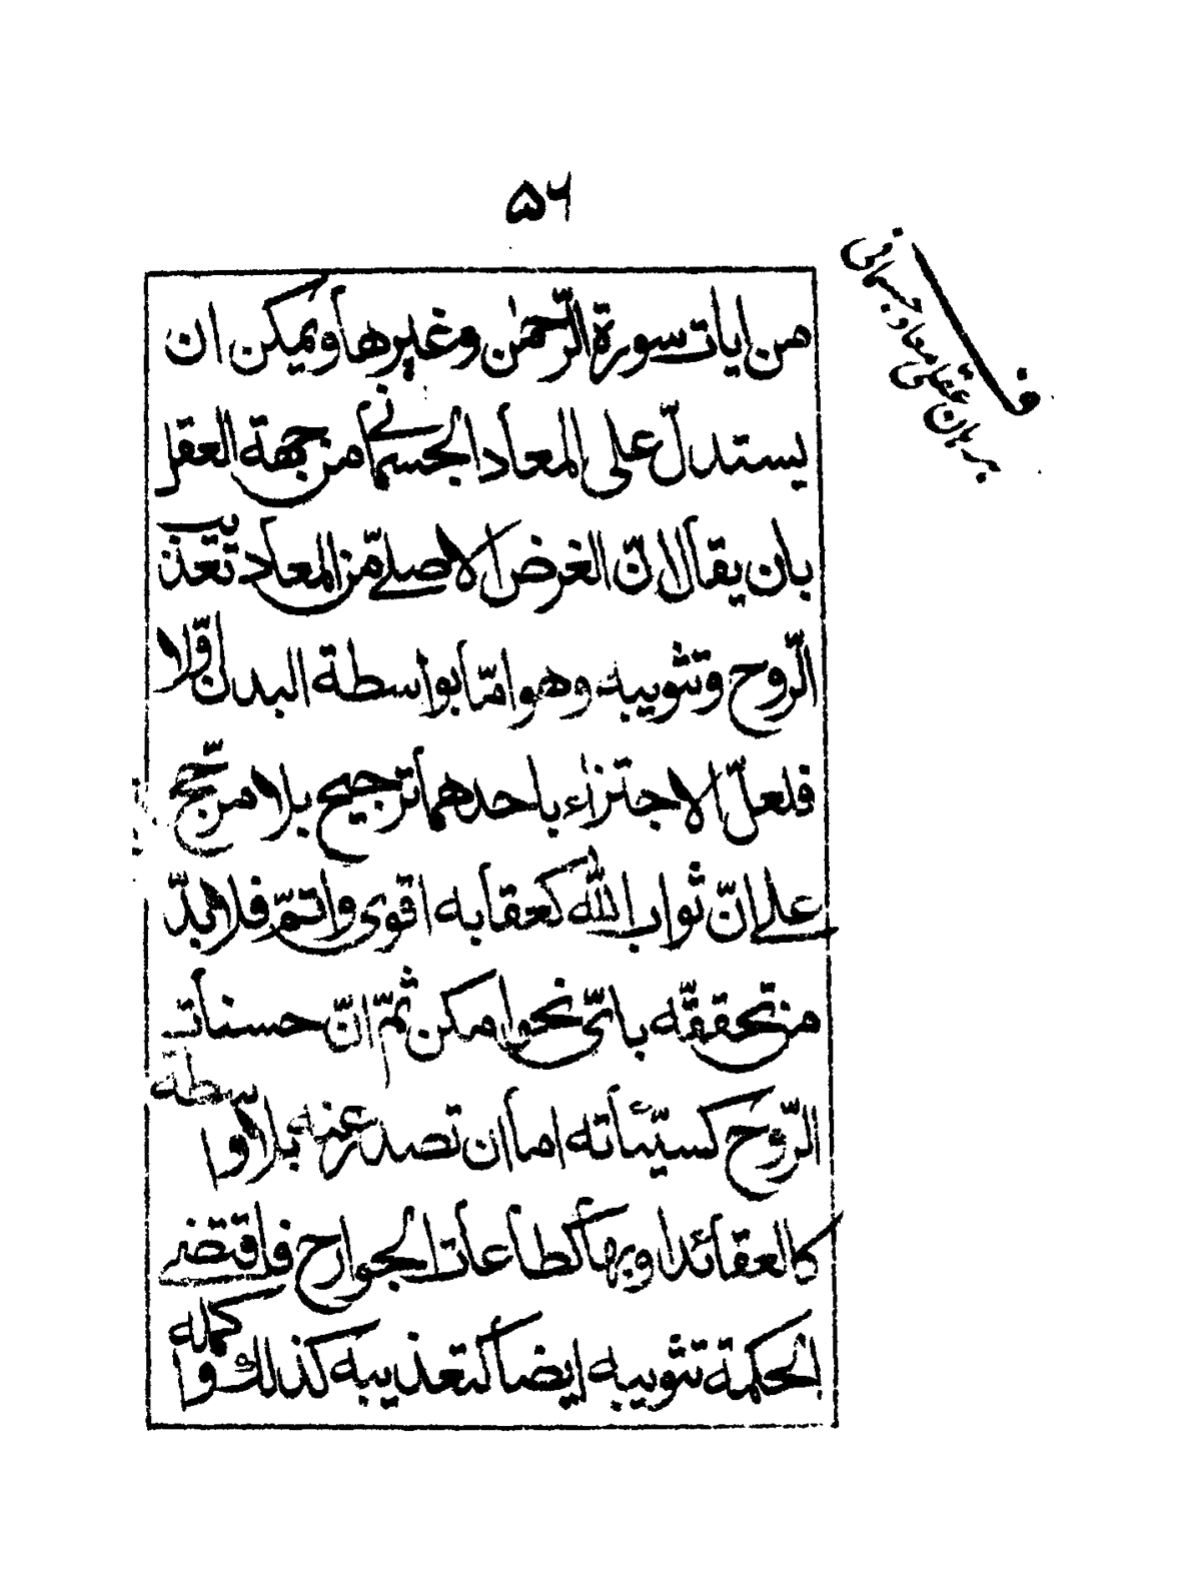 ۵۶
ف
برهان عقلی معاد جسمانی
من ایات سورة الرّحمٰن وغیرها ویمکن ان
یستدلّ علی المعاد الجسمانی من جهة العقل
بان یقال انّ الغرض الاصلے من المعاد تعذیب
الرّوح وتثویبه وهو امّا بواسطة البدن اولا
فلعلّ الاجتزاء باحدهما ترجیح بلا مرجّح
علے انّ ثواب الله کعقابه اقوی واتمّ فلا بدّ
من تحققّه بایّ نحو امکن ثمّ انّ حسنات
الرّوح کسیّئاته اما ان تصدر عنه بلا واسطة
کالعقائد او بها کطاعات الجوارح فاقتضے
الحکمة تثویبه ایضا کتعذیبه کذلك واکمله